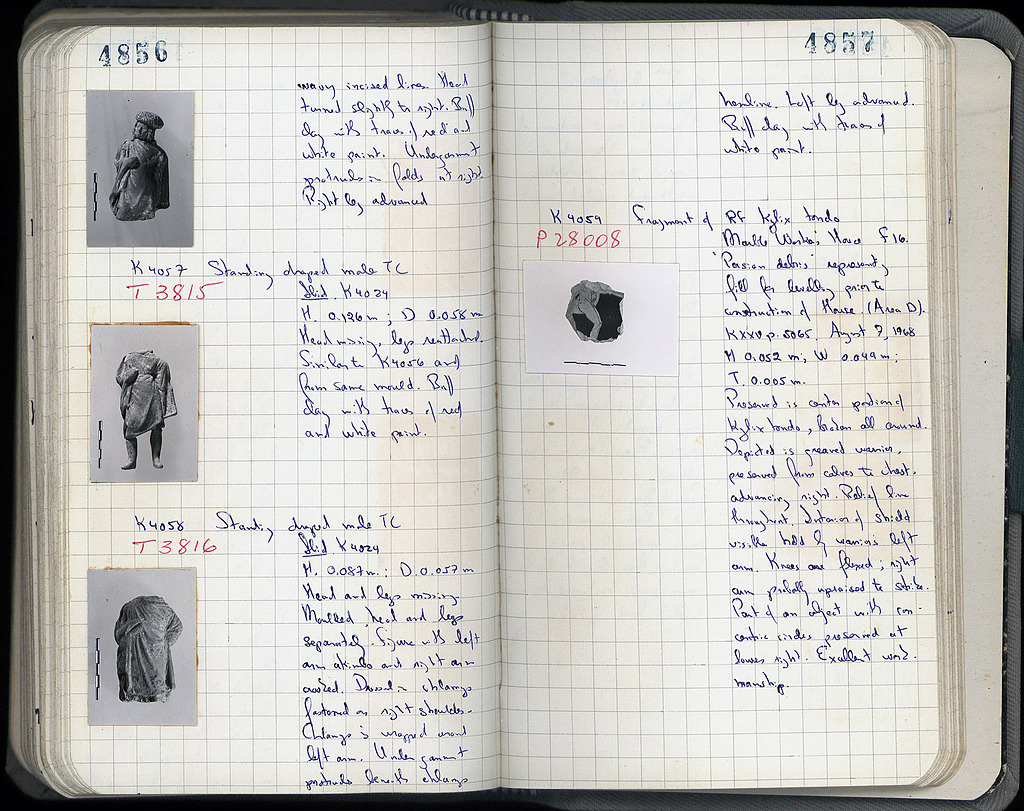 4856
wavy incised lines. Head
turned slightly to right. Buff
clay with traces of red and
white paint. Undergarment
protrudes in folds at right.
Right leg advanced
K4057 Standing draped male TC
T 3815
Ibid. K4024
H. 0.126 m; D 0.058 m
Head missing, legs reattached.
Similar to K4056 and
from same mould. Buff
clay with traces of red
and white paint.
K4058 Standing draped male TC
T 3816
Ibid K4024
H. 0.087m.; D. 0.057 m
Head and legs missing
Moulded, head and legs
separately. Figure with left
arm akimbo and right arm
crooked. Dressed in chlamys
fastened on right shoulder.
Chlamys is wrapped around
left arm. Under garment
protrudes beneath chlamys
4857
hemline. Left leg advanced.
Buff clay with traces of
white paint.
K4059 Fragment of RF Kylix tondo
P 28008
Marble Workers' House F16.
"Persian debris" representing
fill for levelling prior to
construction of House. (Area D).
KXXV p. 5065. August 7, 1968
H 0.052 m; W 0.049 m;
T. 0.005 m.
Preserved is center portion of
Kylix tondo, broken all around.
Depicted is greaved warrior,
preserved from calves to chest.
advancing right. Relief line
throughout. Interior of shield
visible held by warrior's left
arm. Knees are flexed; right
arm probably upraised to strike.
Part of an object with con-
centric circles preserved at
lower right. Excellent work-
manship.